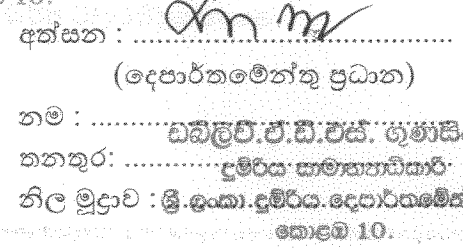 අත්සන : ........................................
(දෙපාර්තමේන්තු ප්‍රධාන)
නම : ........................................
ඩබ්ලිව්.ඒ.ඩී.එස්.
තනතුර: ........................................
දුම්රිය සාමාන්‍යාධිකාරී
නිල මුද්‍රාව : ශ්‍රී ලංකා දුම්රිය
කොළඹ 10.